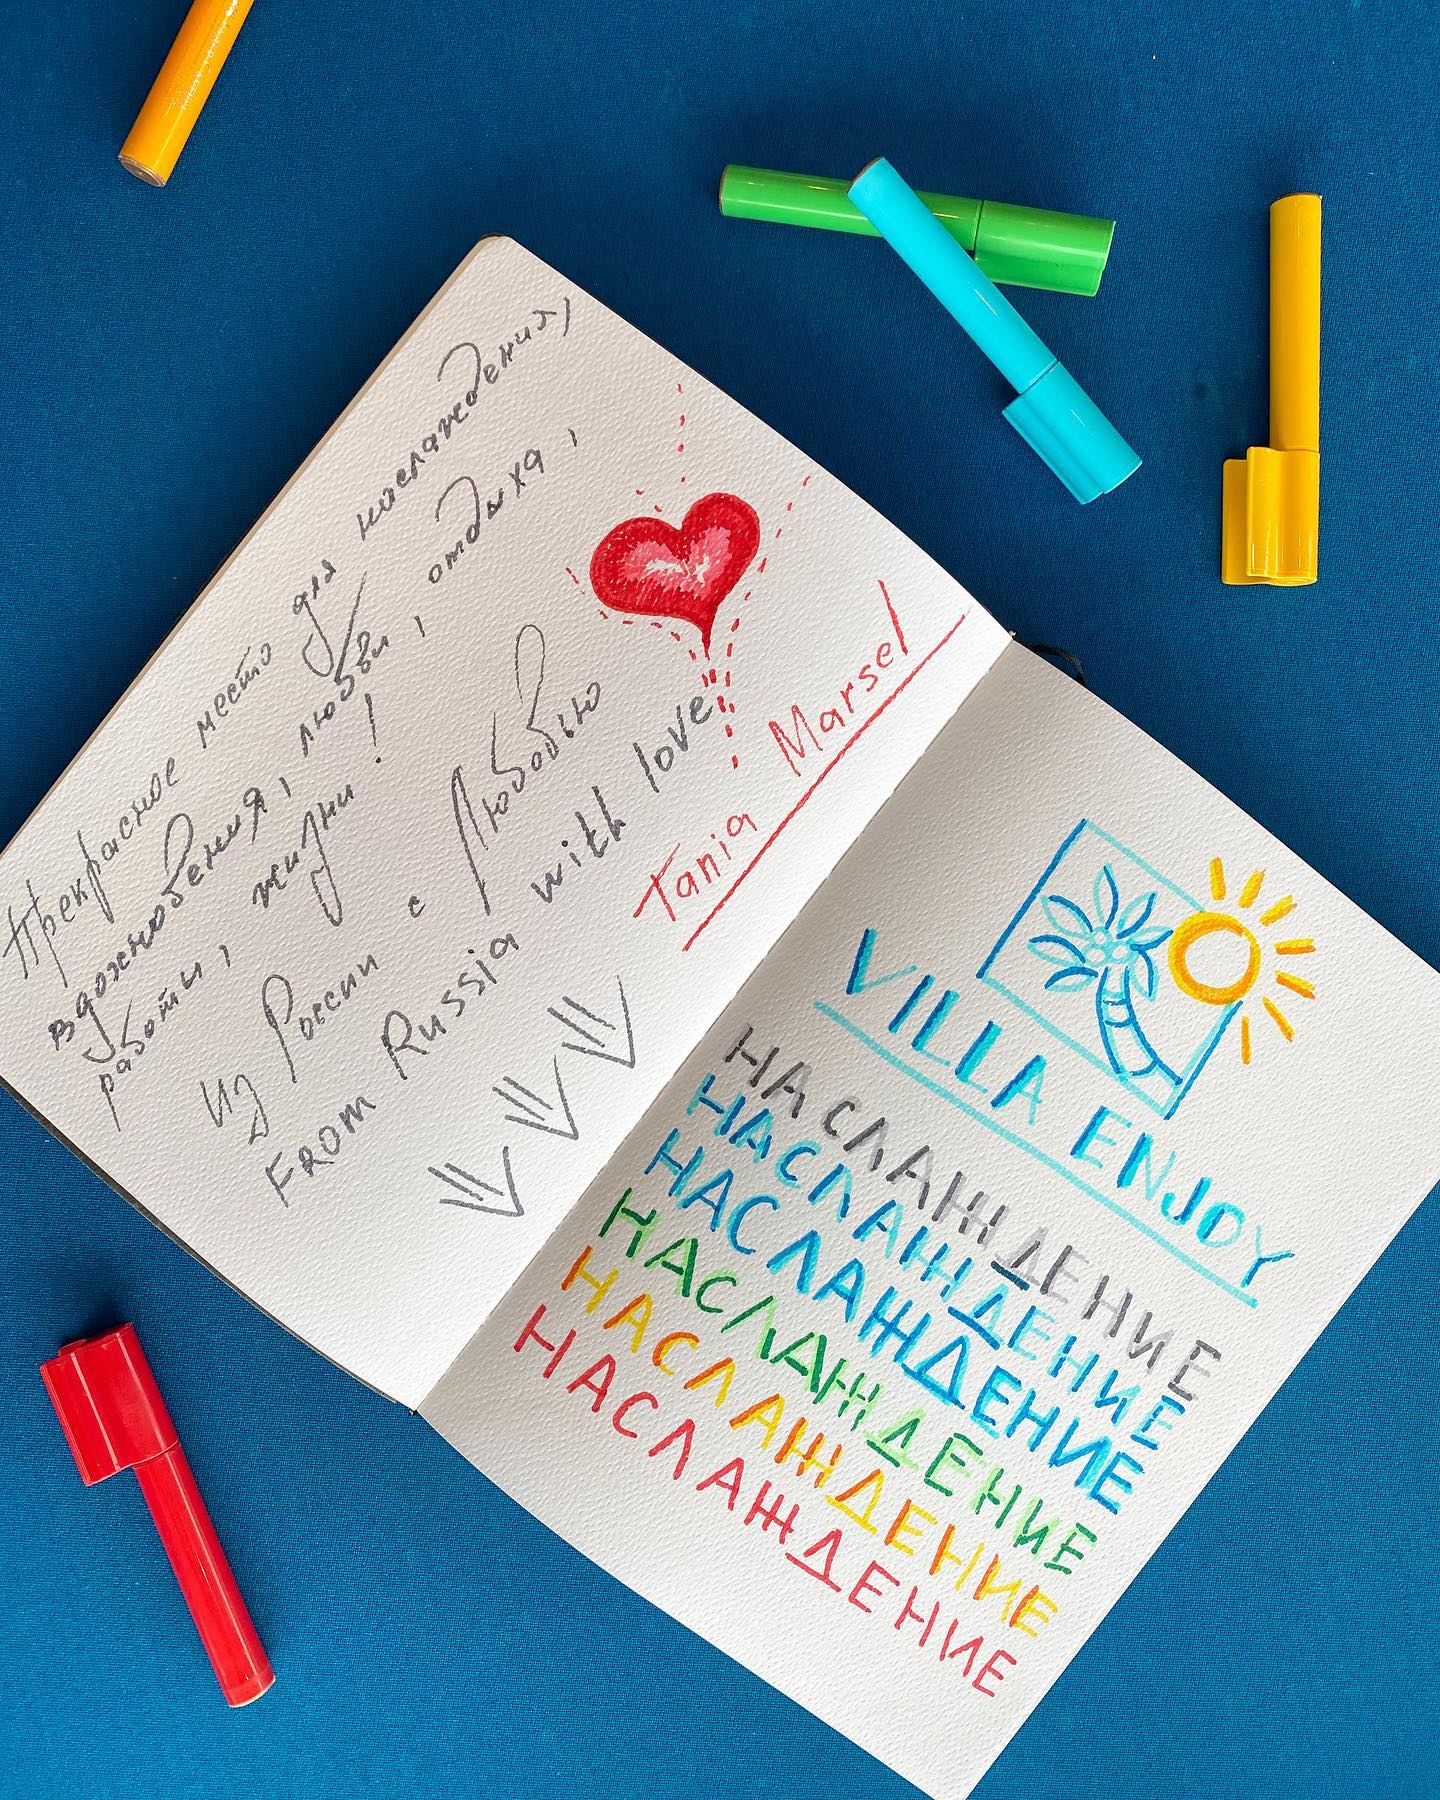 Прекрасное место для наслаждения,
вдохновения, любви, отдыха,
работы, жизни!
Из России с Любовью
FROM Russia with love
Tania Marsel
VILLA ENJOY
НАСЛАЖДЕНИЕ
НАСЛАЖДЕНИЕ
НАСЛАЖДЕНИЕ
НАСЛАЖДЕНИЕ
НАСЛАЖДЕНИЕ
НАСЛАЖДЕНИЕ